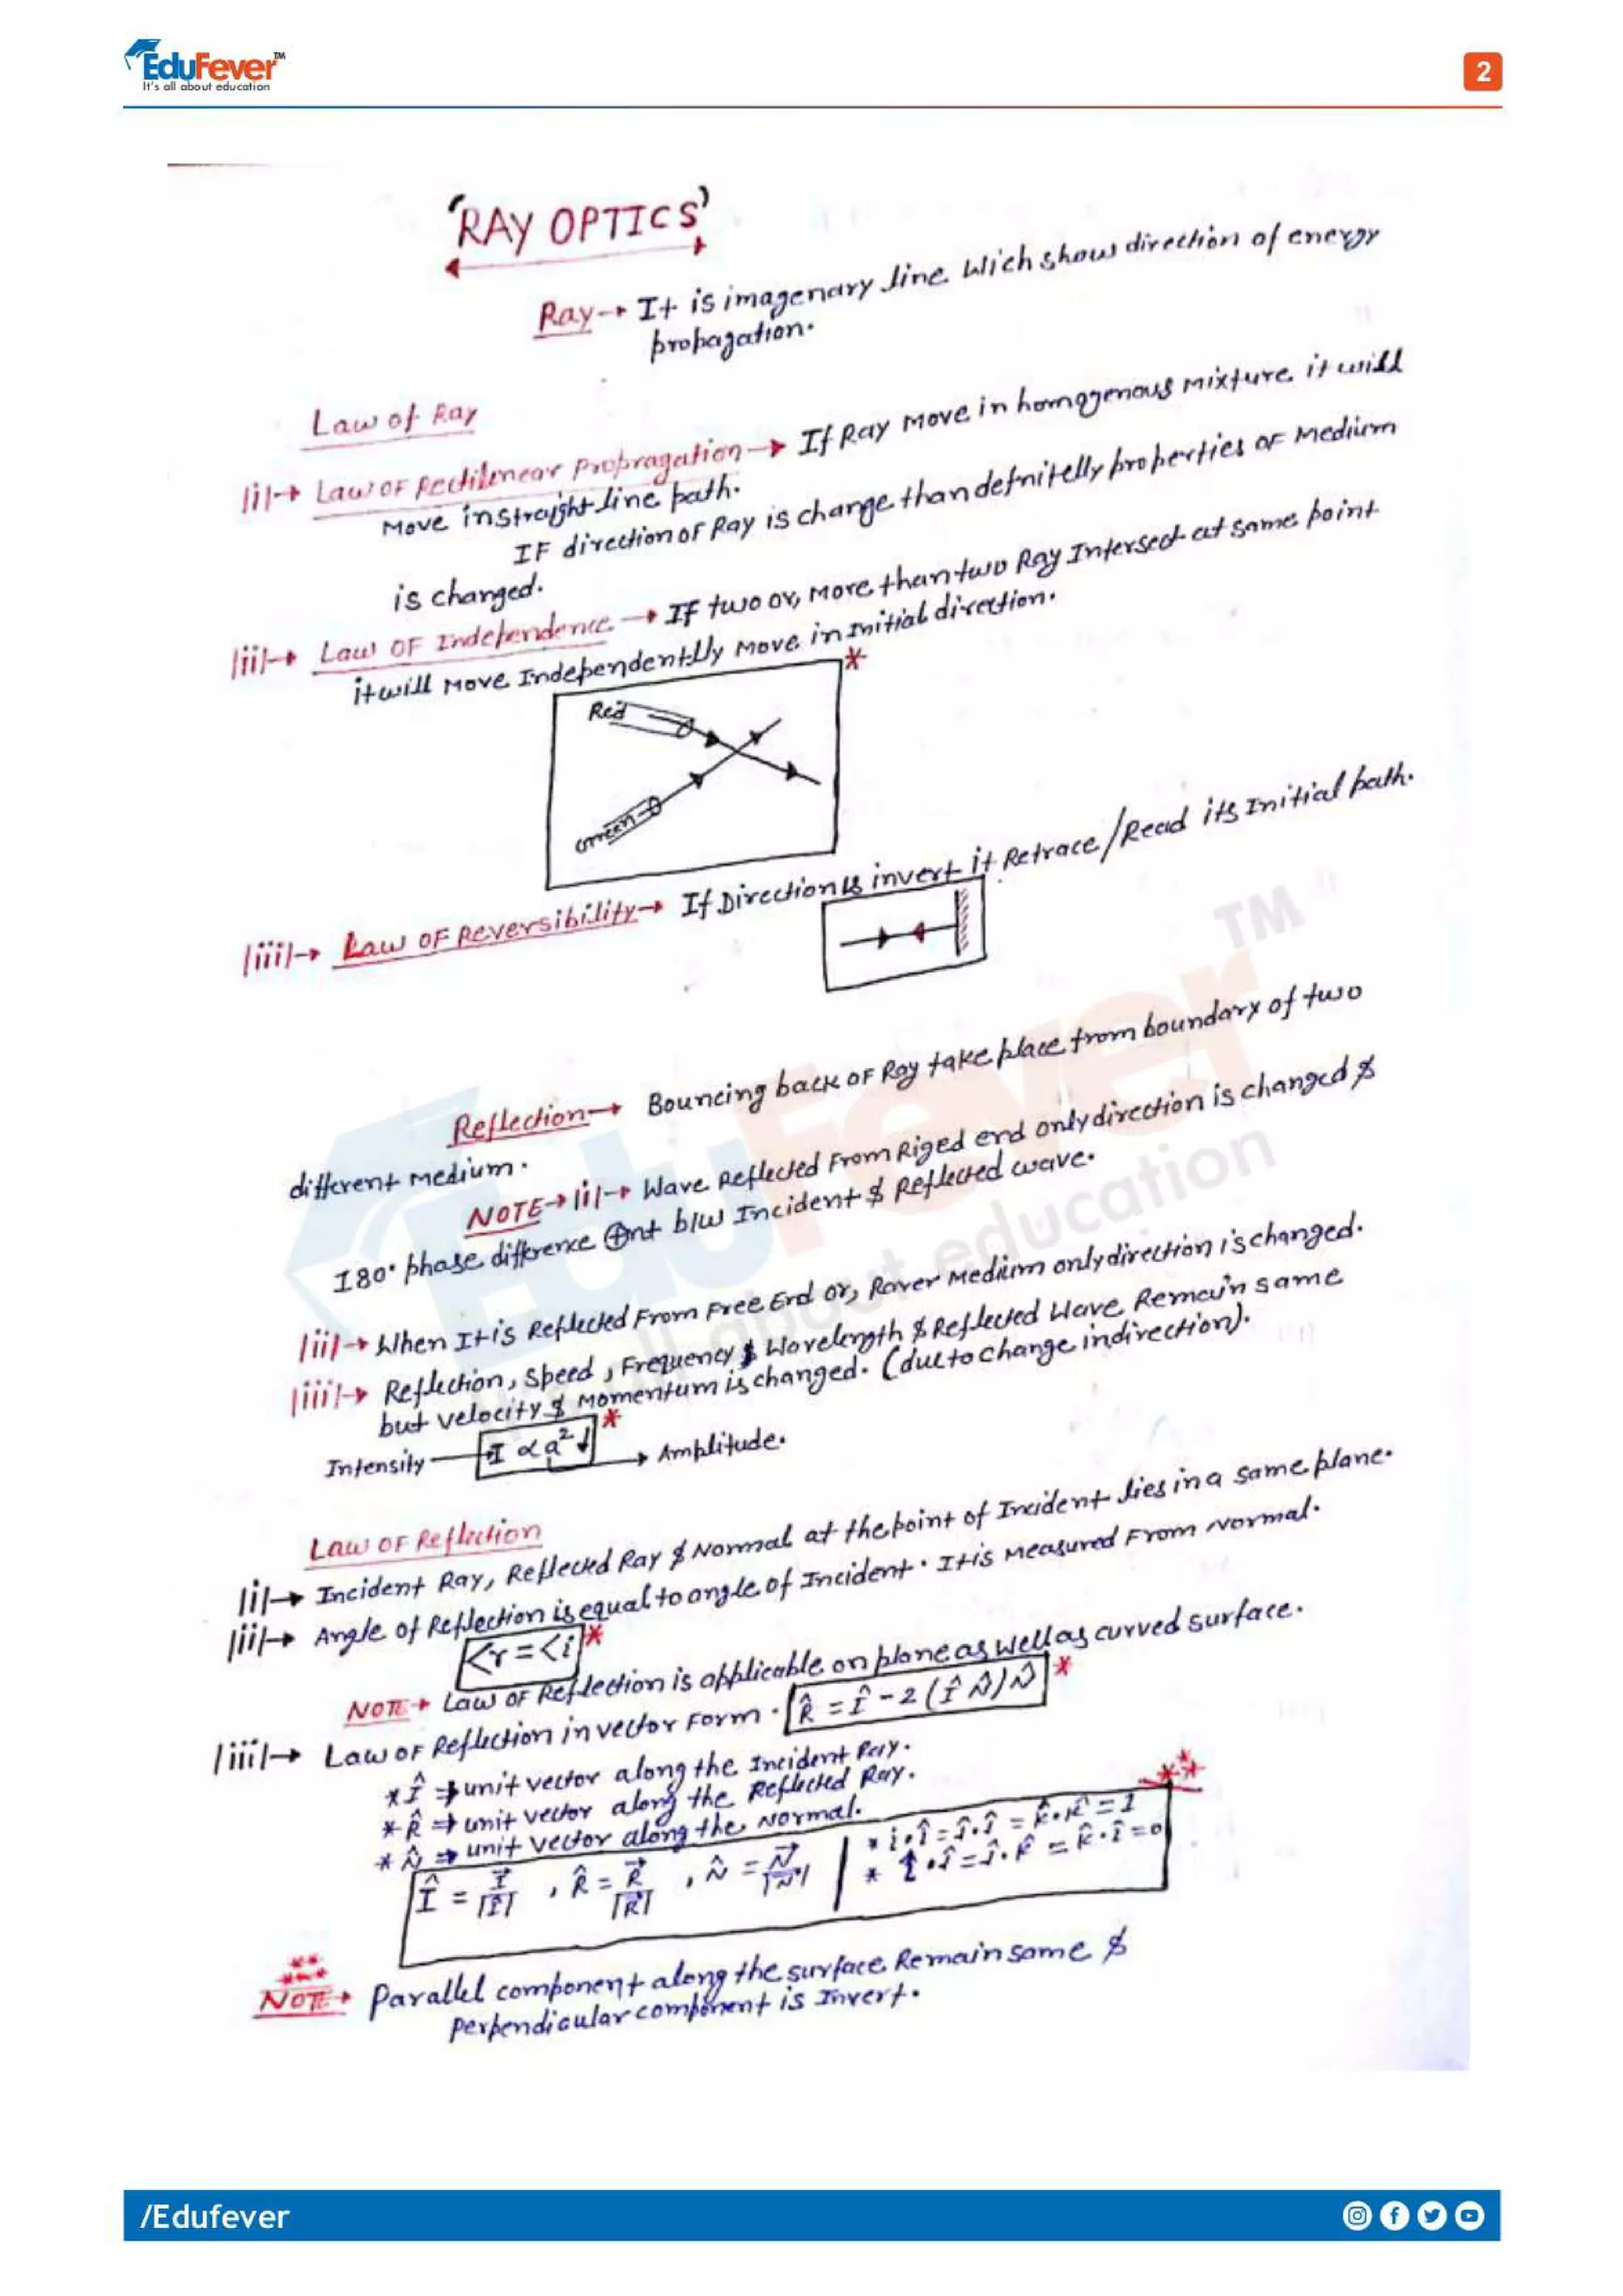 EduFever™
It's all about education
2
'RAY OPTICS'
Ray → It is imagenary line Wich show direction of energy
propagation.
Law of Ray
|i|→ Law OF Rectilinear Propragation → If Ray Move in homogenous Mixture it will
Move in straight line path.
IF direction OF Ray is change than definitelly properties OF Medium
is changed.
|ii|→ Law OF Independence → IF two or, More than two Ray Intersect at same point
it will Move Independentlly Move in Initial direction.
*
Red
Green
|iii|→ Law OF Reversibility → If Direction is invert it Retrace/Read its Initial path.
Reflection → Bouncing back OF Ray take place from boundary of two
different Medium.
NOTE → |i|→ Wave Reflected From Riged end only direction is changed &
180° phase difference ⊕nt b/w Incident & Reflected wave.
|ii|→ When It is Reflected From Free End or, Rarer Medium only direction is changed.
|iii|→ Reflection, Speed, Frequency & Wavelength & Reflected Wave Remain same
but velocity & Momentum is changed. (due to change in direction).
Intensity → I ∝ a²↓ * → Amplitude.
Law OF Reflection
|i|→ Incident Ray, Reflected Ray & Normal at the point of Incident lies in a same plane.
|ii|→ Angle of Reflection is equal to angle of Incident. It is Measured From Normal.
<r = <i *
NOTE → Law OF Reflection is applicable on plane as well as curved surface.
|iii|→ Law OF Reflection in vector Form. R̂ = Î - 2 (Î N̂) N̂ *
* Î ⇒ unit vector along the Incident Ray.
* R̂ ⇒ unit vector along the Reflected Ray.
* N̂ ⇒ unit vector along the Normal.
Î = I⃗/|I⃗| , R̂ = R⃗/|R⃗| , N̂ = N⃗/|N⃗| | * î.î = ĵ.ĵ = k̂.k̂ = 1
* î.ĵ = ĵ.k̂ = k̂.î = 0
***
NOTE → Parallel component along the surface Remain same &
perpendicular component is Invert.
/Edufever